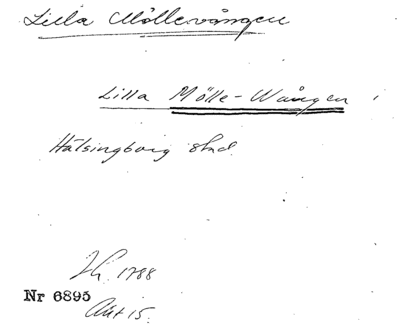 Lilla Möllevången
Lilla Mölle-Wången
Hälsingborg stad
1788
Nr 6895
Akt 15.